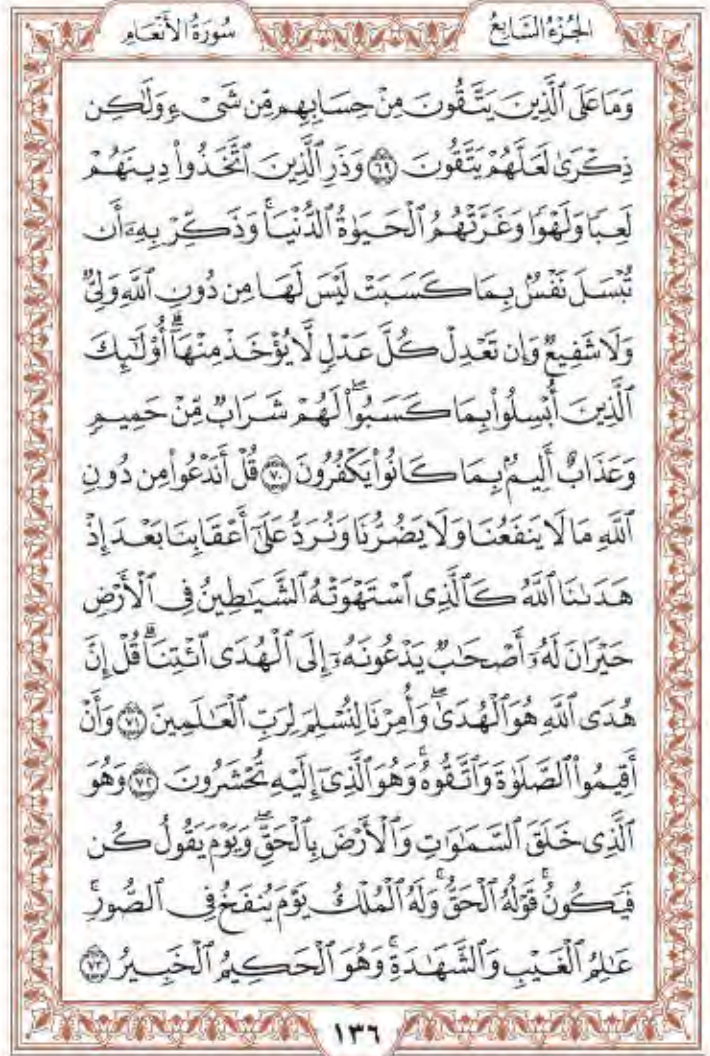 الجُزْءُ السَّابِعُ
سُورَةُ الأَنْعَامِ
وَمَا عَلَى ٱلَّذِينَ يَتَّقُونَ مِنْ حِسَابِهِم مِّن شَىْءٍ وَلَٰكِن
ذِكْرَىٰ لَعَلَّهُمْ يَتَّقُونَ ٦٩ وَذَرِ ٱلَّذِينَ ٱتَّخَذُوا۟ دِينَهُمْ
لَعِبًا وَلَهْوًا وَغَرَّتْهُمُ ٱلْحَيَوٰةُ ٱلدُّنْيَاۚ وَذَكِّرْ بِهِۦٓ أَن
تُبْسَلَ نَفْسٌۢ بِمَا كَسَبَتْ لَيْسَ لَهَا مِن دُونِ ٱللَّهِ وَلِىٌّ
وَلَا شَفِيعٌ وَإِن تَعْدِلْ كُلَّ عَدْلٍ لَّا يُؤْخَذْ مِنْهَآۗ أُو۟لَٰٓئِكَ
ٱلَّذِينَ أُبْسِلُوا۟ بِمَا كَسَبُوا۟ۖ لَهُمْ شَرَابٌ مِّنْ حَمِيمٍ
وَعَذَابٌ أَلِيمٌۢ بِمَا كَانُوا۟ يَكْفُرُونَ ٧٠ قُلْ أَنَدْعُوا۟ مِن دُونِ
ٱللَّهِ مَا لَا يَنفَعُنَا وَلَا يَضُرُّنَا وَنُرَدُّ عَلَىٰٓ أَعْقَابِنَا بَعْدَ إِذْ
هَدَىٰنَا ٱللَّهُ كَٱلَّذِى ٱسْتَهْوَتْهُ ٱلشَّيَٰطِينُ فِى ٱلْأَرْضِ
حَيْرَانَ لَهُۥٓ أَصْحَٰبٌ يَدْعُونَهُۥٓ إِلَى ٱلْهُدَى ٱئْتِنَاۗ قُلْ إِنَّ
هُدَى ٱللَّهِ هُوَ ٱلْهُدَىٰۖ وَأُمِرْنَا لِنُسْلِمَ لِرَبِّ ٱلْعَٰلَمِينَ ٧١ وَأَنْ
أَقِيمُوا۟ ٱلصَّلَوٰةَ وَٱتَّقُوهُۚ وَهُوَ ٱلَّذِىٓ إِلَيْهِ تُحْشَرُونَ ٧٢ وَهُوَ
ٱلَّذِى خَلَقَ ٱلسَّمَٰوَٰتِ وَٱلْأَرْضَ بِٱلْحَقِّۖ وَيَوْمَ يَقُولُ كُن
فَيَكُونُۚ قَوْلُهُ ٱلْحَقُّۚ وَلَهُ ٱلْمُلْكُ يَوْمَ يُنفَخُ فِى ٱلصُّورِۚ
عَٰلِمُ ٱلْغَيْبِ وَٱلشَّهَٰدَةِۚ وَهُوَ ٱلْحَكِيمُ ٱلْخَبِيرُ ٧٣
١٣٦